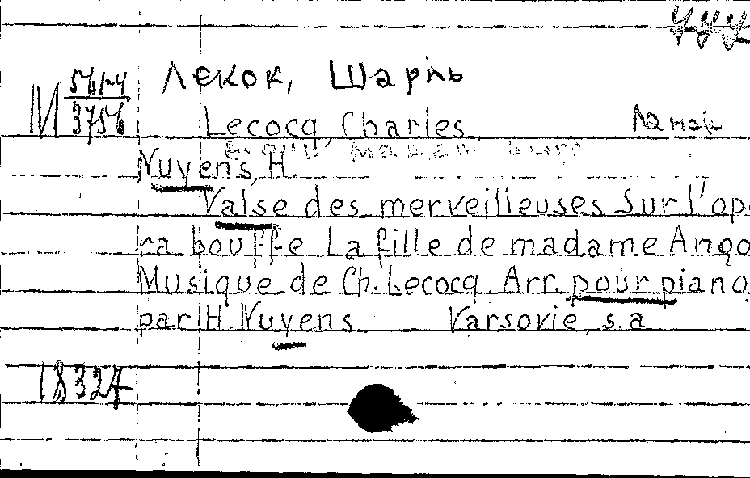 Лекок, Шарль
М 56/-4
3756
Lecocq, Charles
Nuyens, H.
Valse des merveilleuses sur l'opé
ra bouffe La fille de madame Ango
Musique de Ch. Lecocq. Arr. pour piano
par H. Nuyens. Varsovie, s.a.
18327